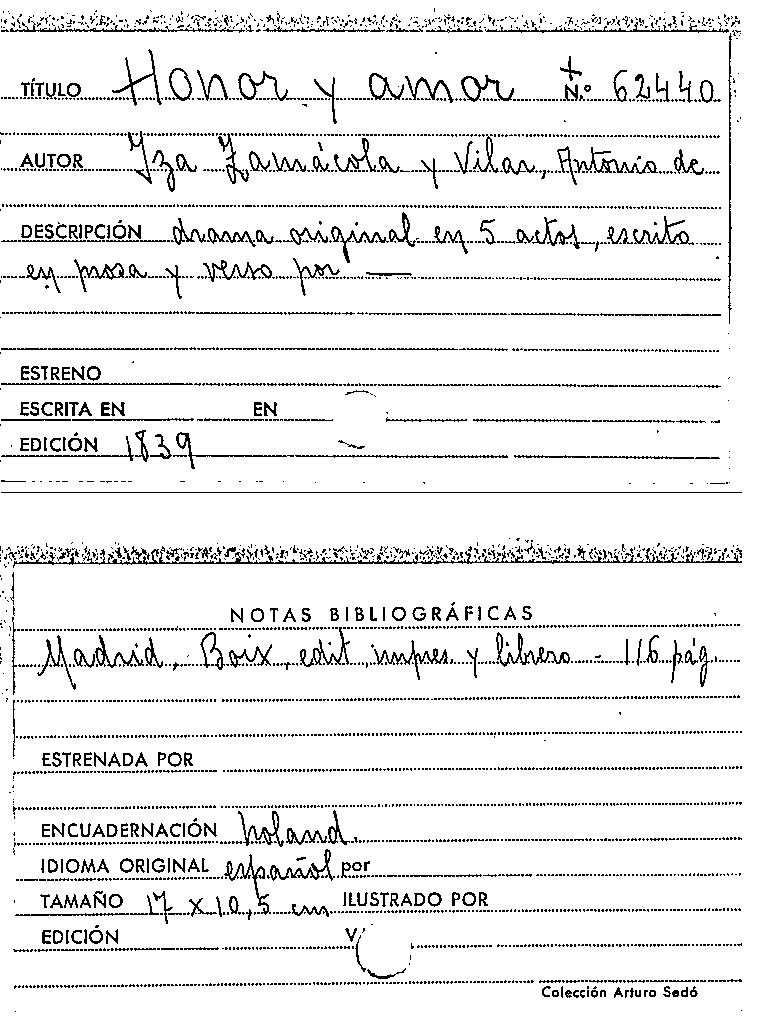 TÍTULO Honor y amor + N.º 62440
AUTOR Iza Zamácola y Vilar, Antonio de
DESCRIPCIÓN drama original en 5 actos, escrito
en prosa y verso por —
ESTRENO
ESCRITA EN EN
EDICIÓN 1839
NOTAS BIBLIOGRÁFICAS
Madrid, Boix, edit, impres y librero - 116 pág.
ESTRENADA POR
ENCUADERNACIÓN holand.
IDIOMA ORIGINAL español por
TAMAÑO 17 x 10,5 cm ILUSTRADO POR
EDICIÓN V
Colección Arturo Sedó